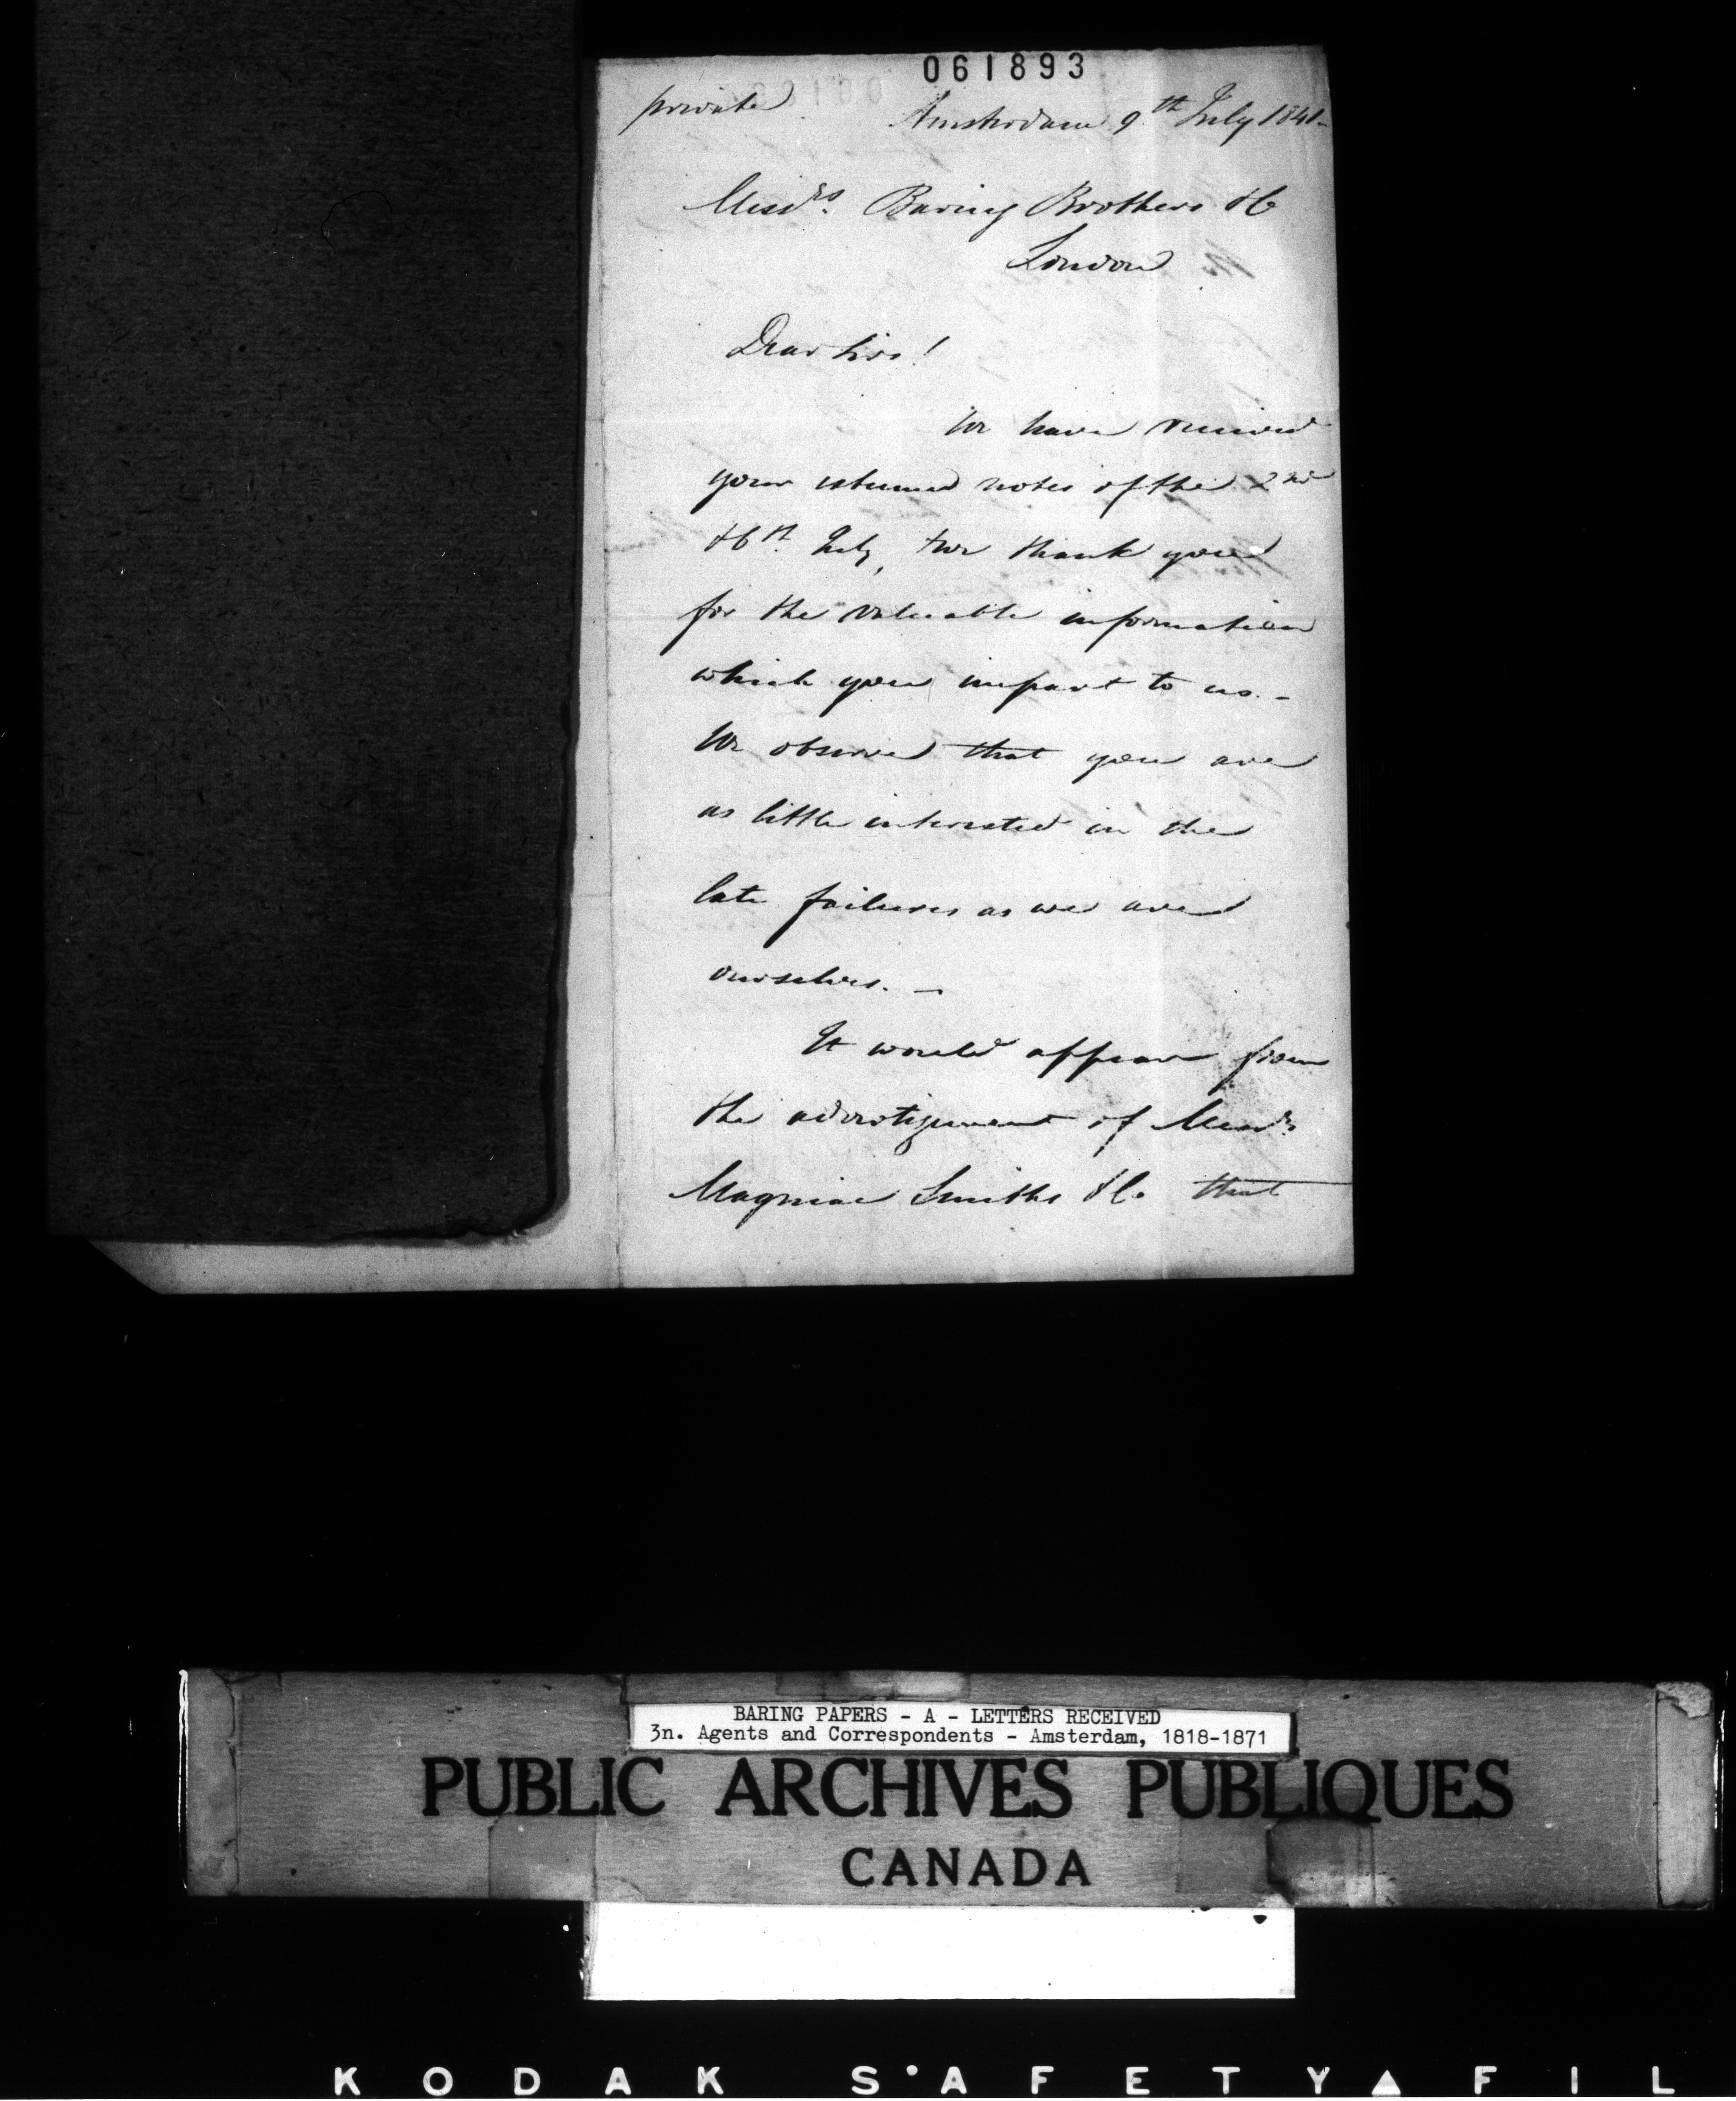 061893
private
Amsterdam 9th July 1841
Messrs. Baring Brothers & Co
London
Dear Sirs!
We have received
your esteemed notes of the 2nd
& 6th July, & we thank you
for the valuable information
which you impart to us. -
We observe that you are
as little interested in the
late failures as we are
ourselves. -
It would appear from
the advertizement of Messrs
Magniac Smiths & Co that
BARING PAPERS - A - LETTERS RECEIVED
3n. Agents and Correspondents - Amsterdam, 1818-1871
PUBLIC ARCHIVES PUBLIQUES
CANADA
KODAK SAFETY FIL